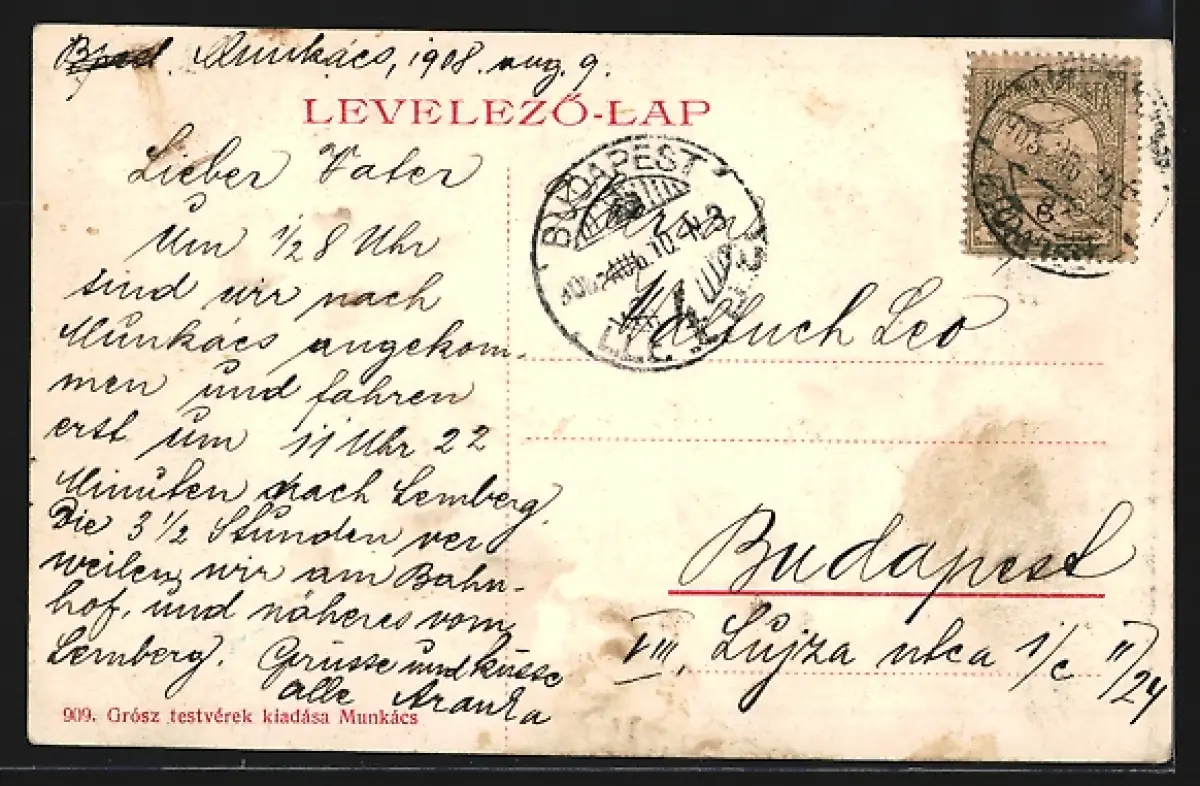 Munkács, 1908. aug. 9.
LEVELEZŐ-LAP
Lieber Vater
Um 1/2 8 Uhr
sind wir nach
Munkács angekom-
men und fahren
erst um 11 Uhr 22
Minuten nach Lemberg.
Die 3 1/2 Stunden ver
weilen wir am Bahn-
hof, und näheres vom
Lemberg. Grüsse und küsse
alle Aranka
909. Grósz testvérek kiadása Munkács
BUDAPEST
Leo
Budapest
VIII, Lujza utca 1/c II/24